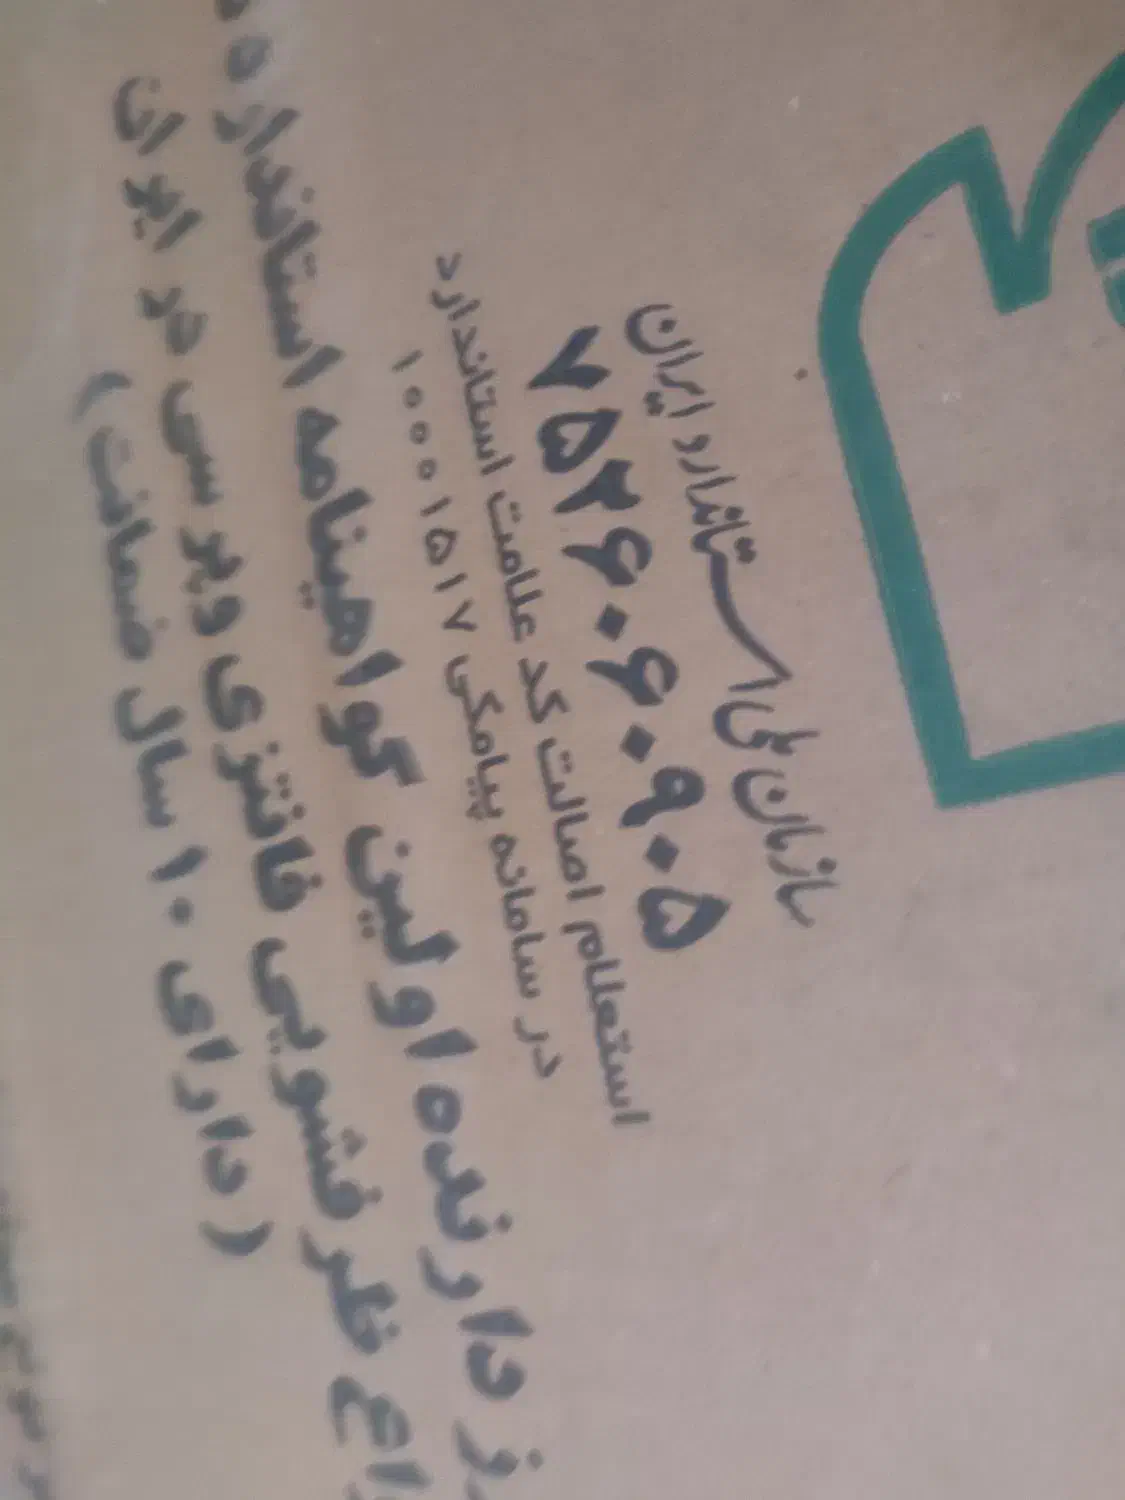 سازمان ملی استاندارد ایران
۷۵۲۶۰۶۰۹۰۵
استعلام اصالت کد علامت استاندارد
در سامانه پیامکی ۱۰۰۰۱۵۱۷
دارنده اولین گواهینامه استاندارد
ظرفشویی فانتزی و پرسی در ایران
(دارای ۱۰ سال ضمانت)